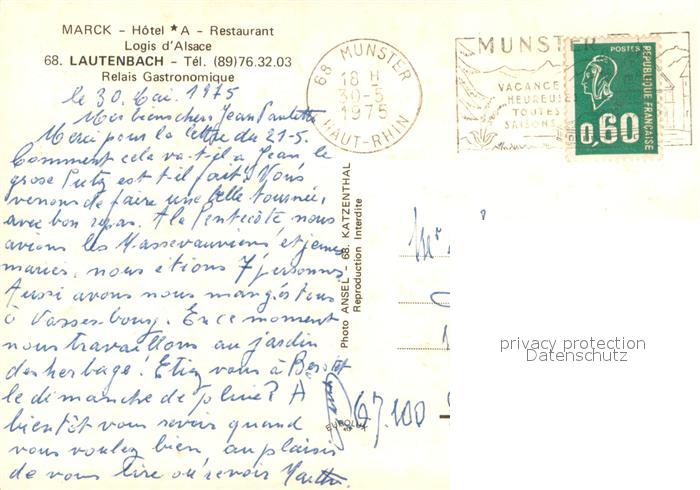 MARCK - Hôtel ★A - Restaurant
Logis d'Alsace
68. LAUTENBACH - Tél. (89)76.32.03
Relais Gastronomique
68 MUNSTER
18 H
30-5
1975
HAUT-RHIN
MUNSTER
VACANCES
HEUREUSES
TOUTES
SAISONS
POSTES
REPUBLIQUE FRANÇAISE
0,60
le 30. Mai. 1975
Mes bien chers Jean Paulette
Merci pour la lettre du 21-5.
Comment cela va-t-il a Jean le
grose est t-il fait? Vous
venons de faire une belle tournée,
avec bon repas. A la Pentecôte nous
avions les Massevauxiens et jeunes
mariés, nous étions 7 personnes.
Aussi avons nous mangés tous
à . En ce moment
nous travaillons au jardin
desherbage! Etiez vous à
le dimanche de pluie? A
bientôt vous revoir quand
vous voulez bien, au plaisir
de vous lire ou revoir Marthe
Photo ANSEL - 68. KATZENTHAL
Reproduction Interdite
EUROLUX
Mr
67.100
privacy protection
Datenschutz